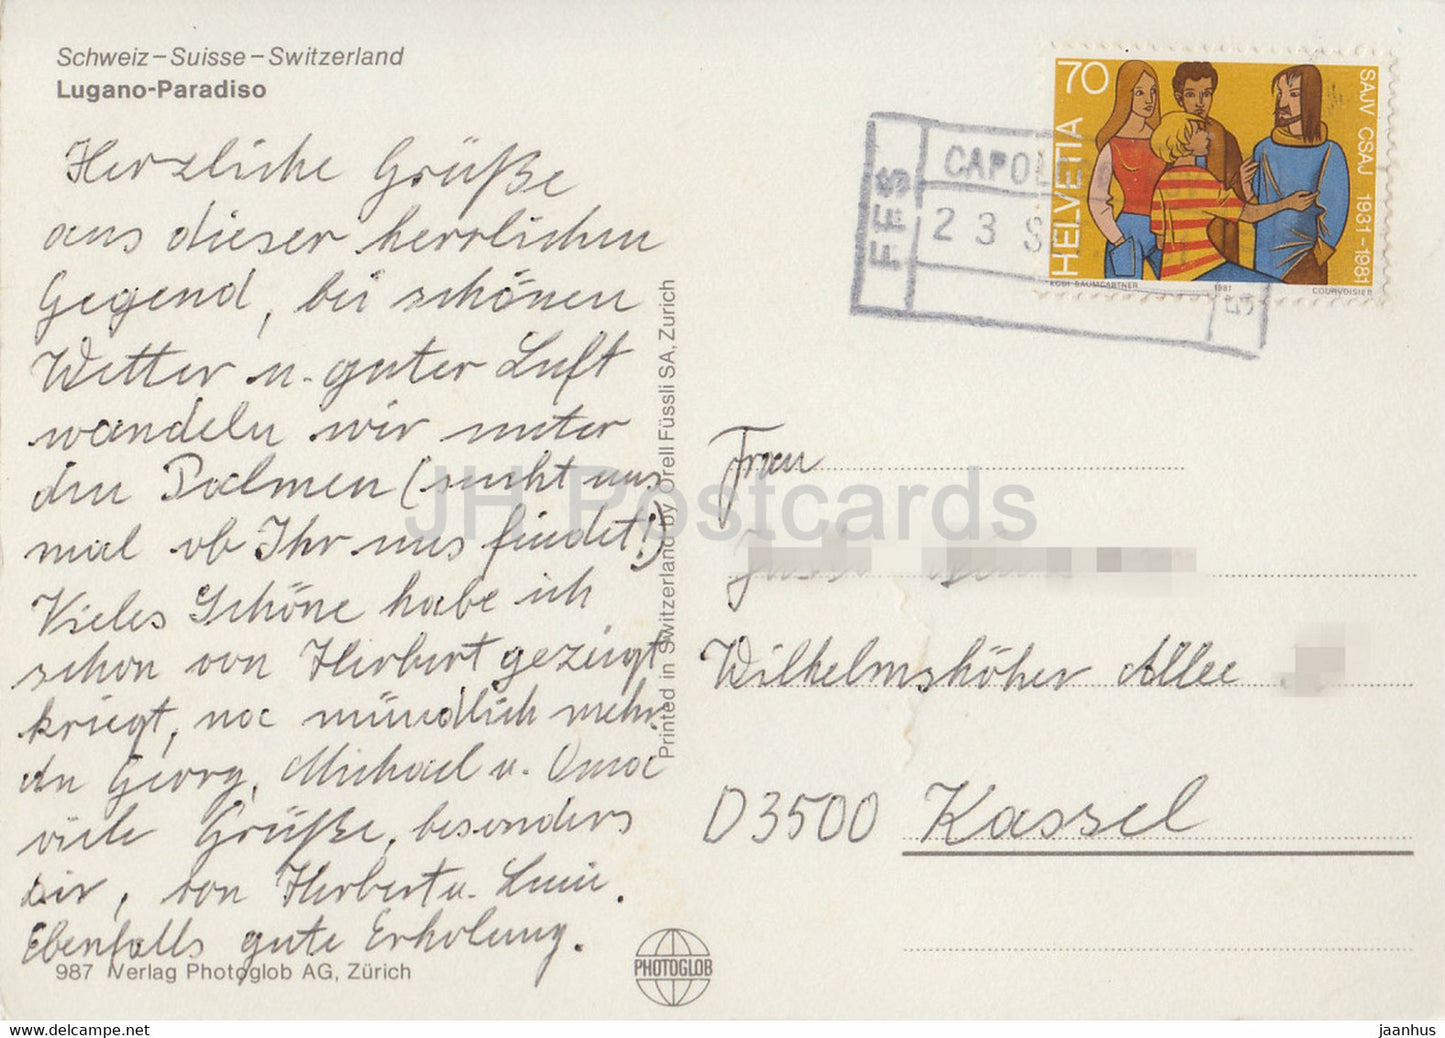 Schweiz – Suisse – Switzerland
Lugano-Paradiso
Herzliche Grüße
aus dieser herrlichen
Gegend, bei schönen
Wetter u. guter Luft
wandeln wir unter
den Palmen (sucht uns
mal ob Ihr uns findet!)
Vieles Schöne habe ich
schon von Herbert gezeigt
kriegt, mündlich mehr
An Georg, Michael u. Oma
viele Grüße, besonders
Dir, von Herbert u.
Ebenfalls gute Erholung.
987 Verlag Photoglob AG, Zürich
Printed in Switzerland by Orell Füssli SA, Zürich
PHOTOGLOB
FFS
CAPOL
23 S
70
HELVETIA
SAJV CSAJ 1931-1981
KOBI BAUMGARTNER 1981 COURVOISIER
Frau
Wilhelmshöher Allee
D 3500 Kassel
JH Postcards
https://www.delcampe.net/store/JH-Postcards
jaanhus